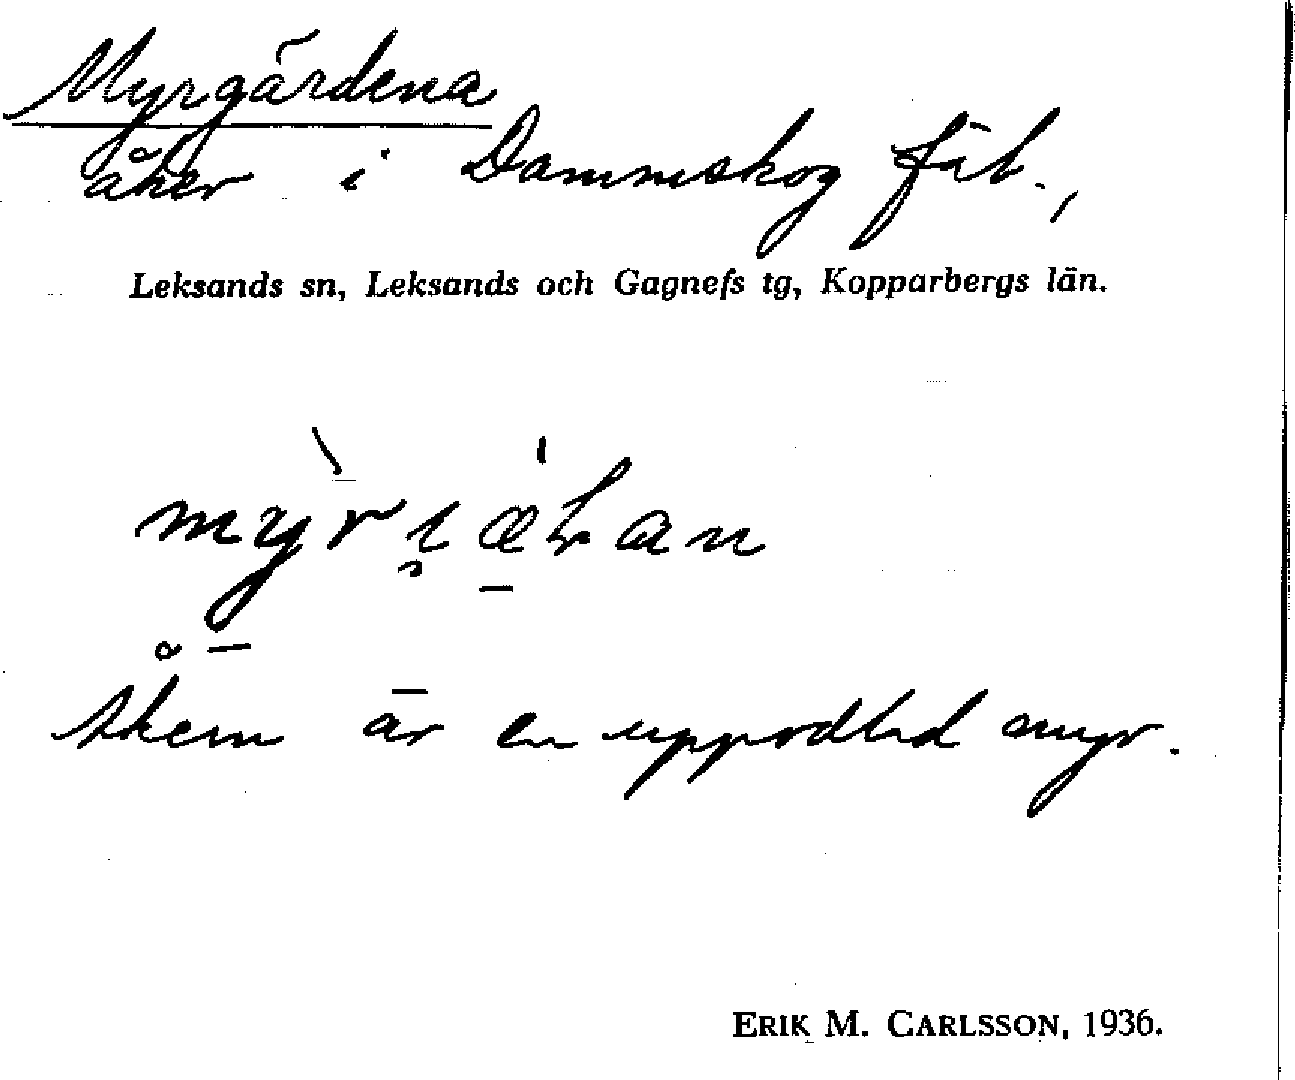 Myrgärdena
åker i Dammskog fäb.,
Leksands sn, Leksands och Gagnefs tg, Kopparbergs län.
Åkern är en uppodlad myr.
ERIK M. CARLSSON, 1936.